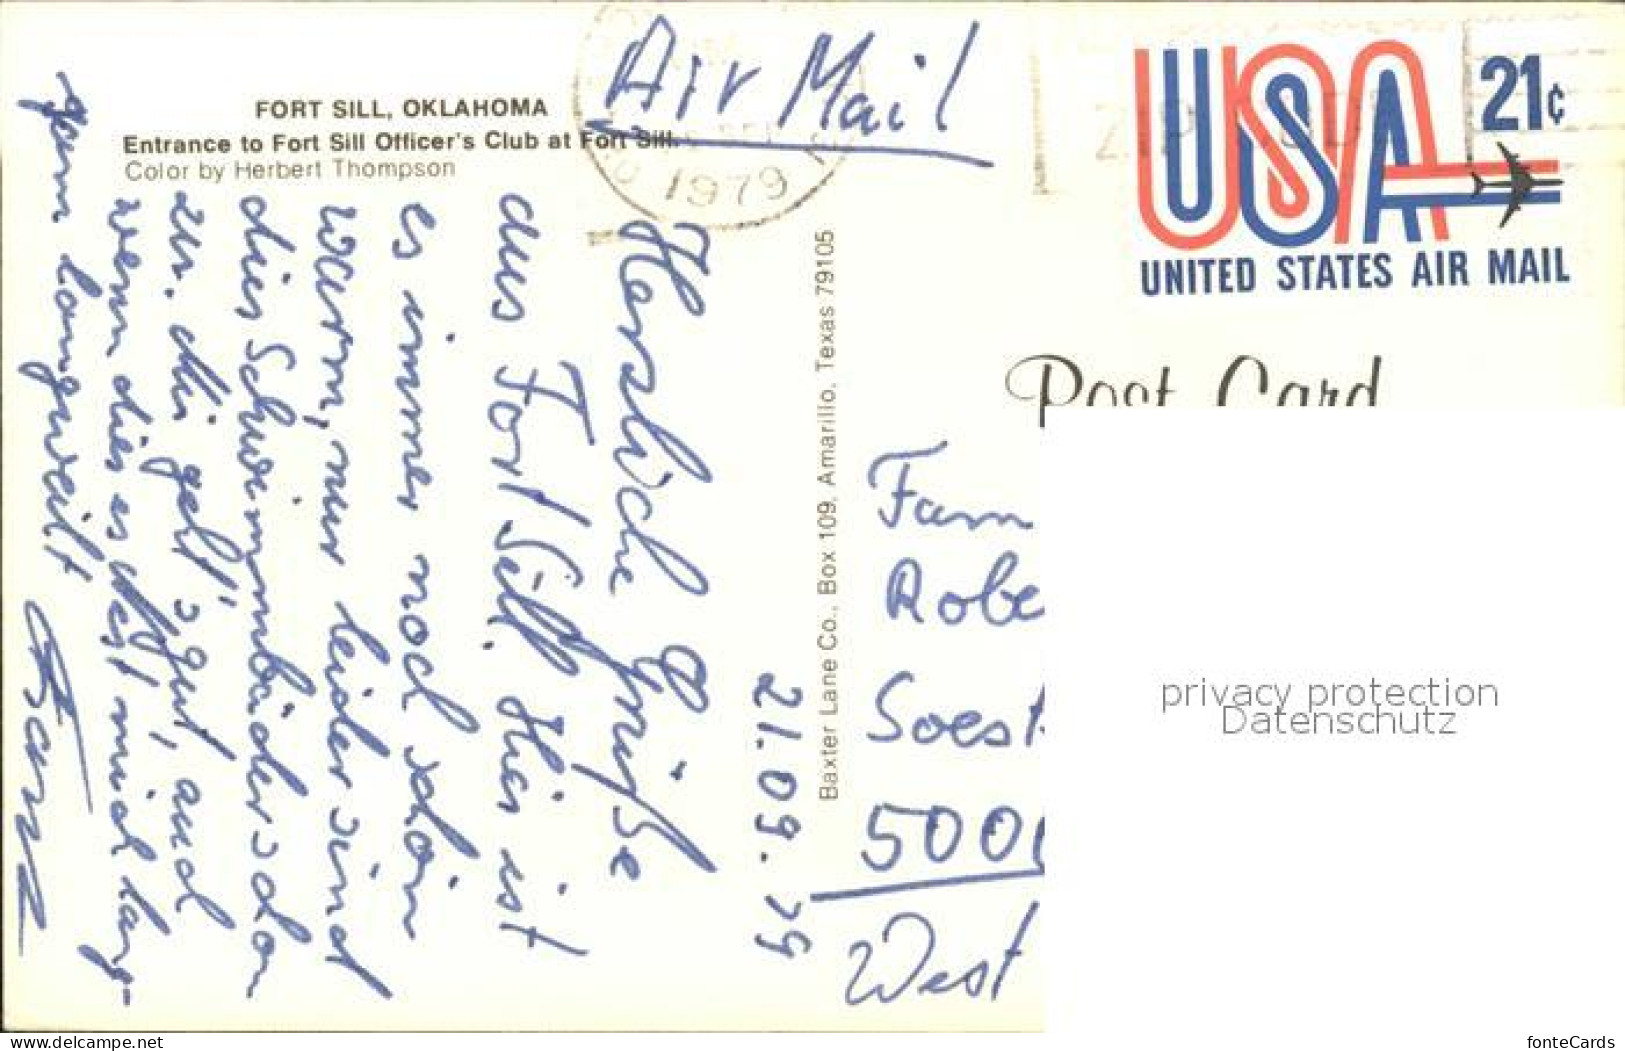 FORT SILL, OKLAHOMA
Entrance to Fort Sill Officer's Club at Fort Sill.
Color by Herbert Thompson
Air Mail
1979
USA 21c
UNITED STATES AIR MAIL
Post Card
21.09.79
Herzliche Grüße
aus Fort Sill. Hier ist
es immer noch schön
warm, nur leider sind
die Schwimmbäder schon
zu. Mir geht's gut, auch
wenn dieses Nest mich lang-
sam langweilt
Baxter Lane Co., Box 109, Amarillo, Texas 79105
Fam
Robe
Soest
500
West
privacy protection
Datenschutz
www.delcampe.net
fonteCards